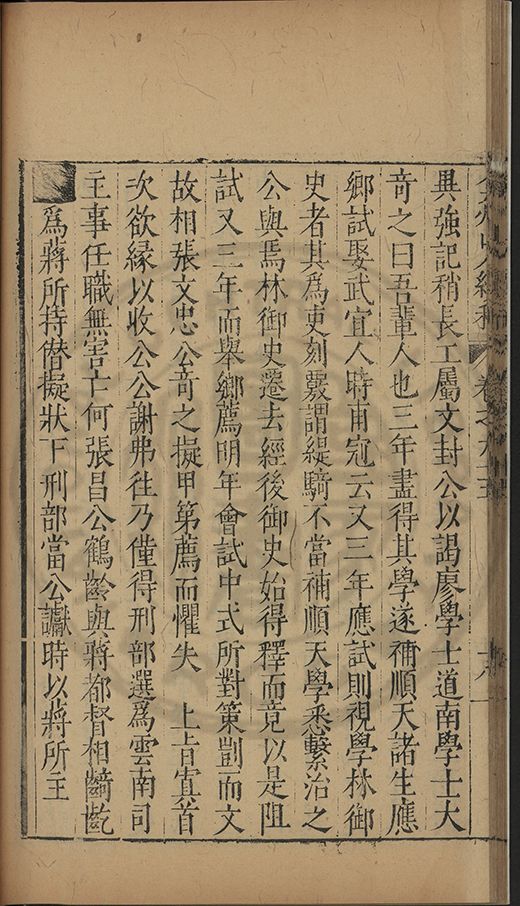 州山人續稿 卷之
異強記稍長工屬文封公以謁廖學士道南學士大
竒之曰吾輩人也三年盡得其學遂補順天諸生應
鄉試娶武宜人時甫冠云又三年應試則視學林御
史者其為吏刻覈謂緹騎不當補順天學悉繫治之
公與焉林御史遷去經後御史始得釋而竟以是阻
試又三年而舉鄉薦明年會試中式所對策剴而文
故相張文忠公竒之擬甲第薦而懼失 上旨寘首
次欲縁以收公公謝弗往乃僅得刑部選為雲南司
主事任職無害亡何張昌公鶴齡與蔣都督相齮齕
為蔣所持僣擬狀下刑部當公讞時以蔣所主